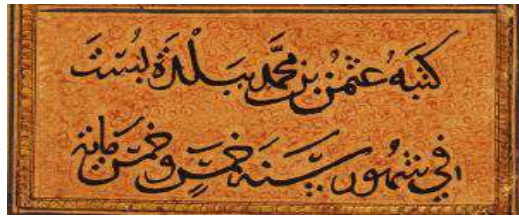 كتبه عثمن بن محمد ببلدة بست
في شهور سنة خمس وخمس مائة